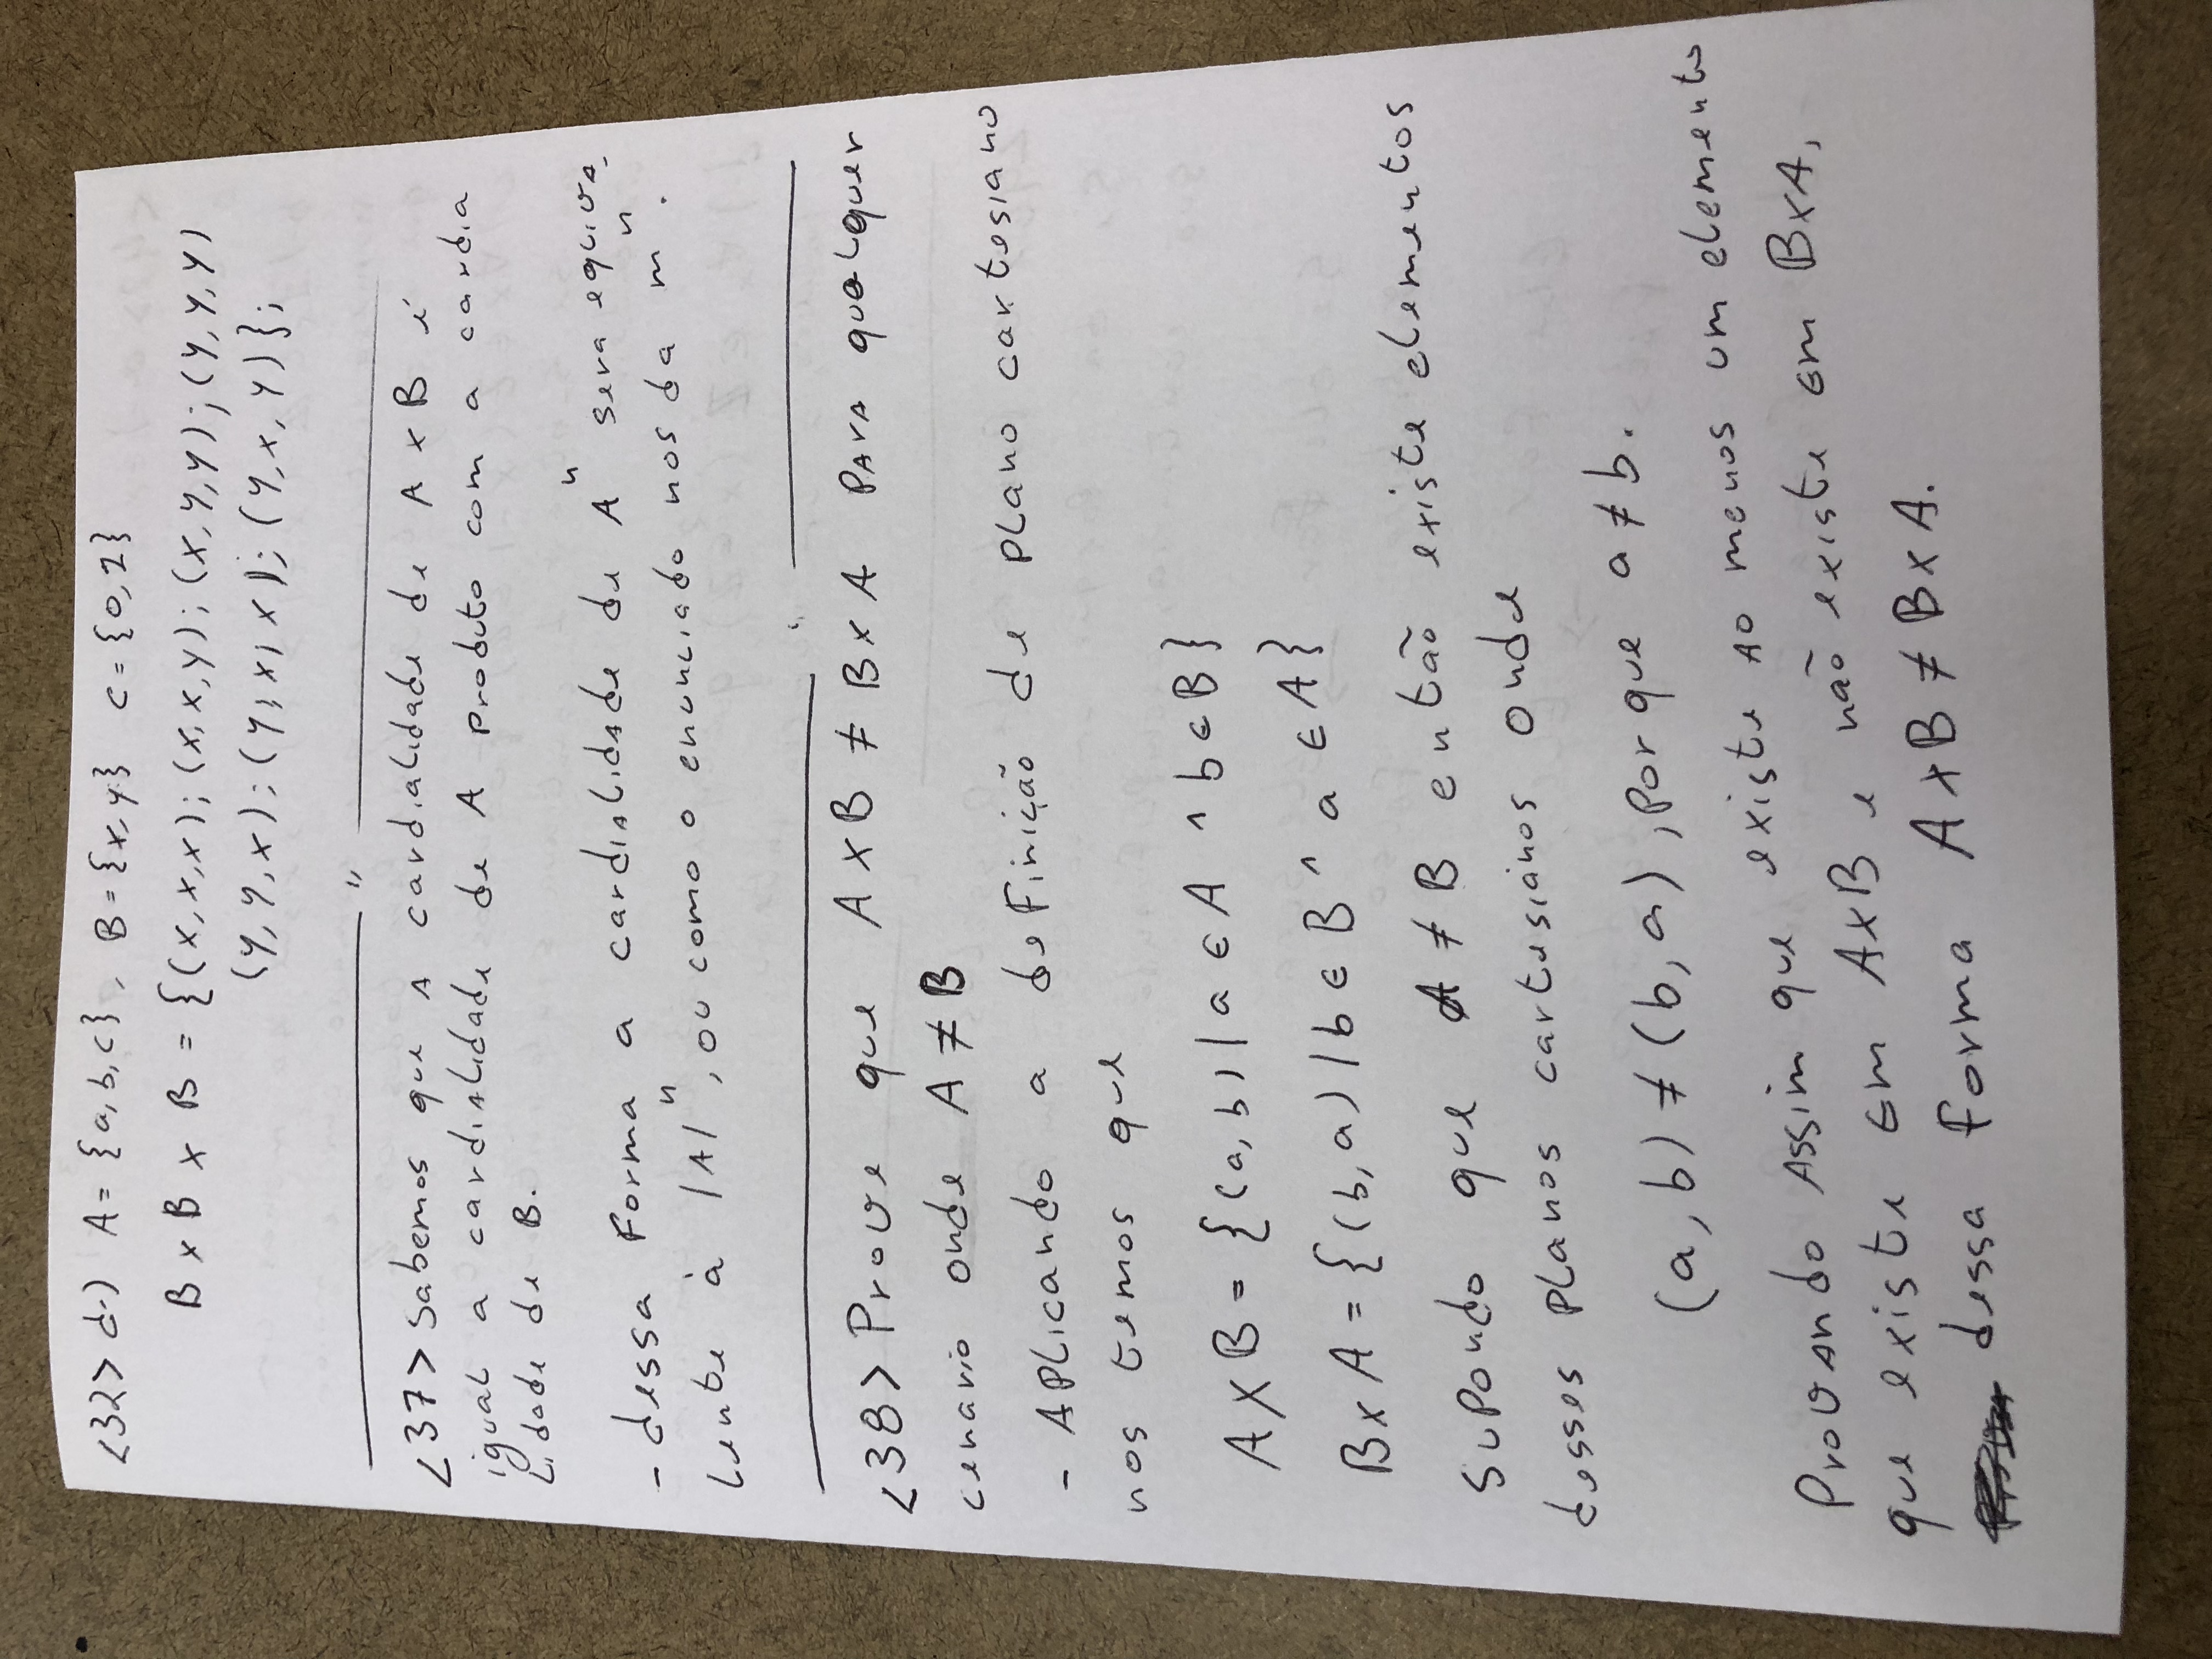 <32> d.) A = {a, b, c}, B = {x, y} C = {0, 1}
B x B x B = {(x, x, x); (x, x, y); (x, y, y); (y, y, y)
(y, y, x); (y, x, x); (y, x, y)};
"
<37> Sabemos que a cardialidade de A x B é
igual a cardialidade de A produto com a cardia
lidade de B.
- dessa forma a cardialidade de Aⁿ sera equiva
lente à |A|ⁿ, ou como o enunciado nos da mⁿ.
<38> Prove que A x B ≠ B x A para qualquer
cenario onde A ≠ B
- Aplicando a definição de plano cartesiano
nos temos que
A x B = {(a, b) | a ∈ A ^ b ∈ B}
B x A = {(b, a) | b ∈ B ^ a ∈ A}
Supondo que A ≠ B então existe elementos
desses planos cartesianos onde
(a, b) ≠ (b, a), porque a ≠ b.
Provando assim que existe ao menos um elemento
que existe em AxB e não existe em BxA,
dessa forma A x B ≠ B x A.